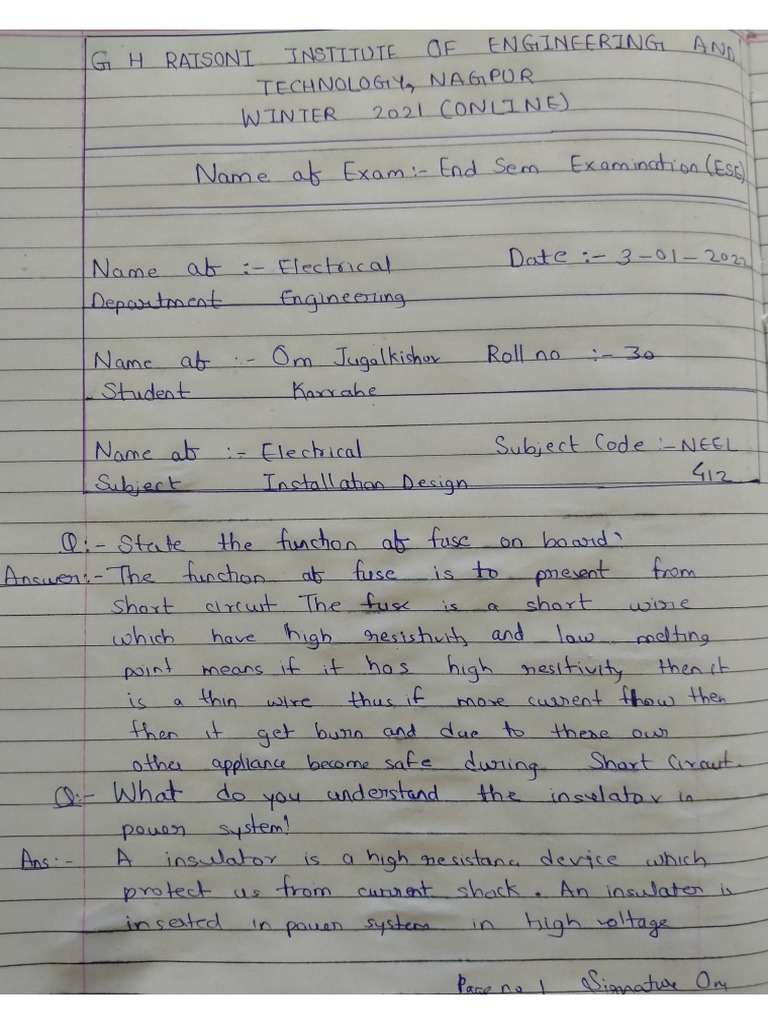 G H RAISONI INSTITUTE OF ENGINEERING AND
TECHNOLOGY, NAGPUR
WINTER 2021 (ONLINE)
Name of Exam:- End Sem Examination (ESE)
Name of :- Electrical Date :- 3-01-2022
Department Engineering
Name of :- Om Jugalkishor Roll no :- 30
Student Karrahe
Name of :- Electrical Subject Code :- NEEL
Subject Installation Design 412
Q:- State the function of fuse on board?
Answer:- The function of fuse is to prevent from
short circuit The fuse is a short wire
which have high resistivity and low melting
point means if it has high resitivity then it
is a thin wire thus if more current flow then
then it get burn and due to these our
other appliance become safe during Short Circuit.
Q:- What do you understand the insulator in
power system!
Ans:- A insulator is a high resistanc device which
protect us from current shock. An insulater is
inserted in power system in high voltage
Page no 1 Signnature Om